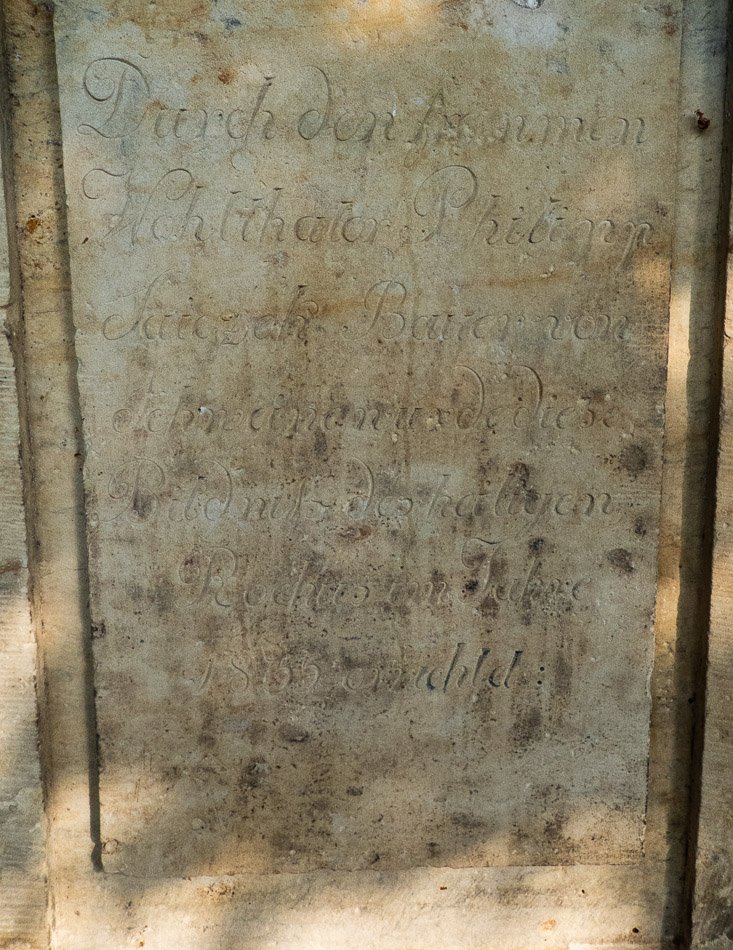 Durch den frommen
Wohlthäter Philipp
Bauer von
wurde diese
Bildniß des heiligen
Rochus im Jahre
errichtd: